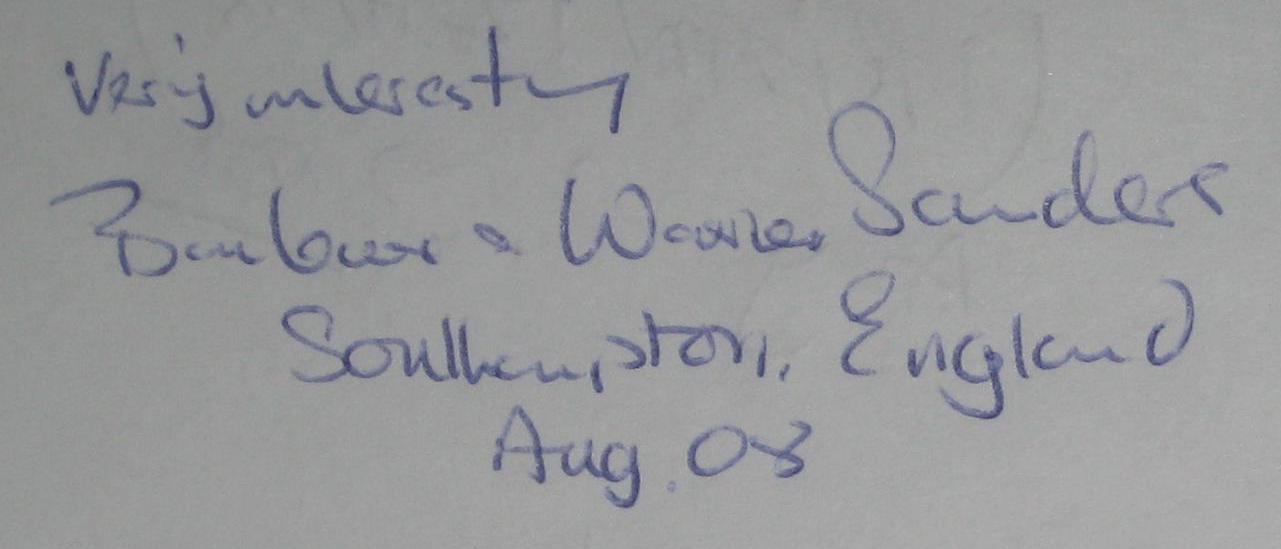 Very interesting
Barbara & Warren Sanders
Southampton, England
Aug. 08